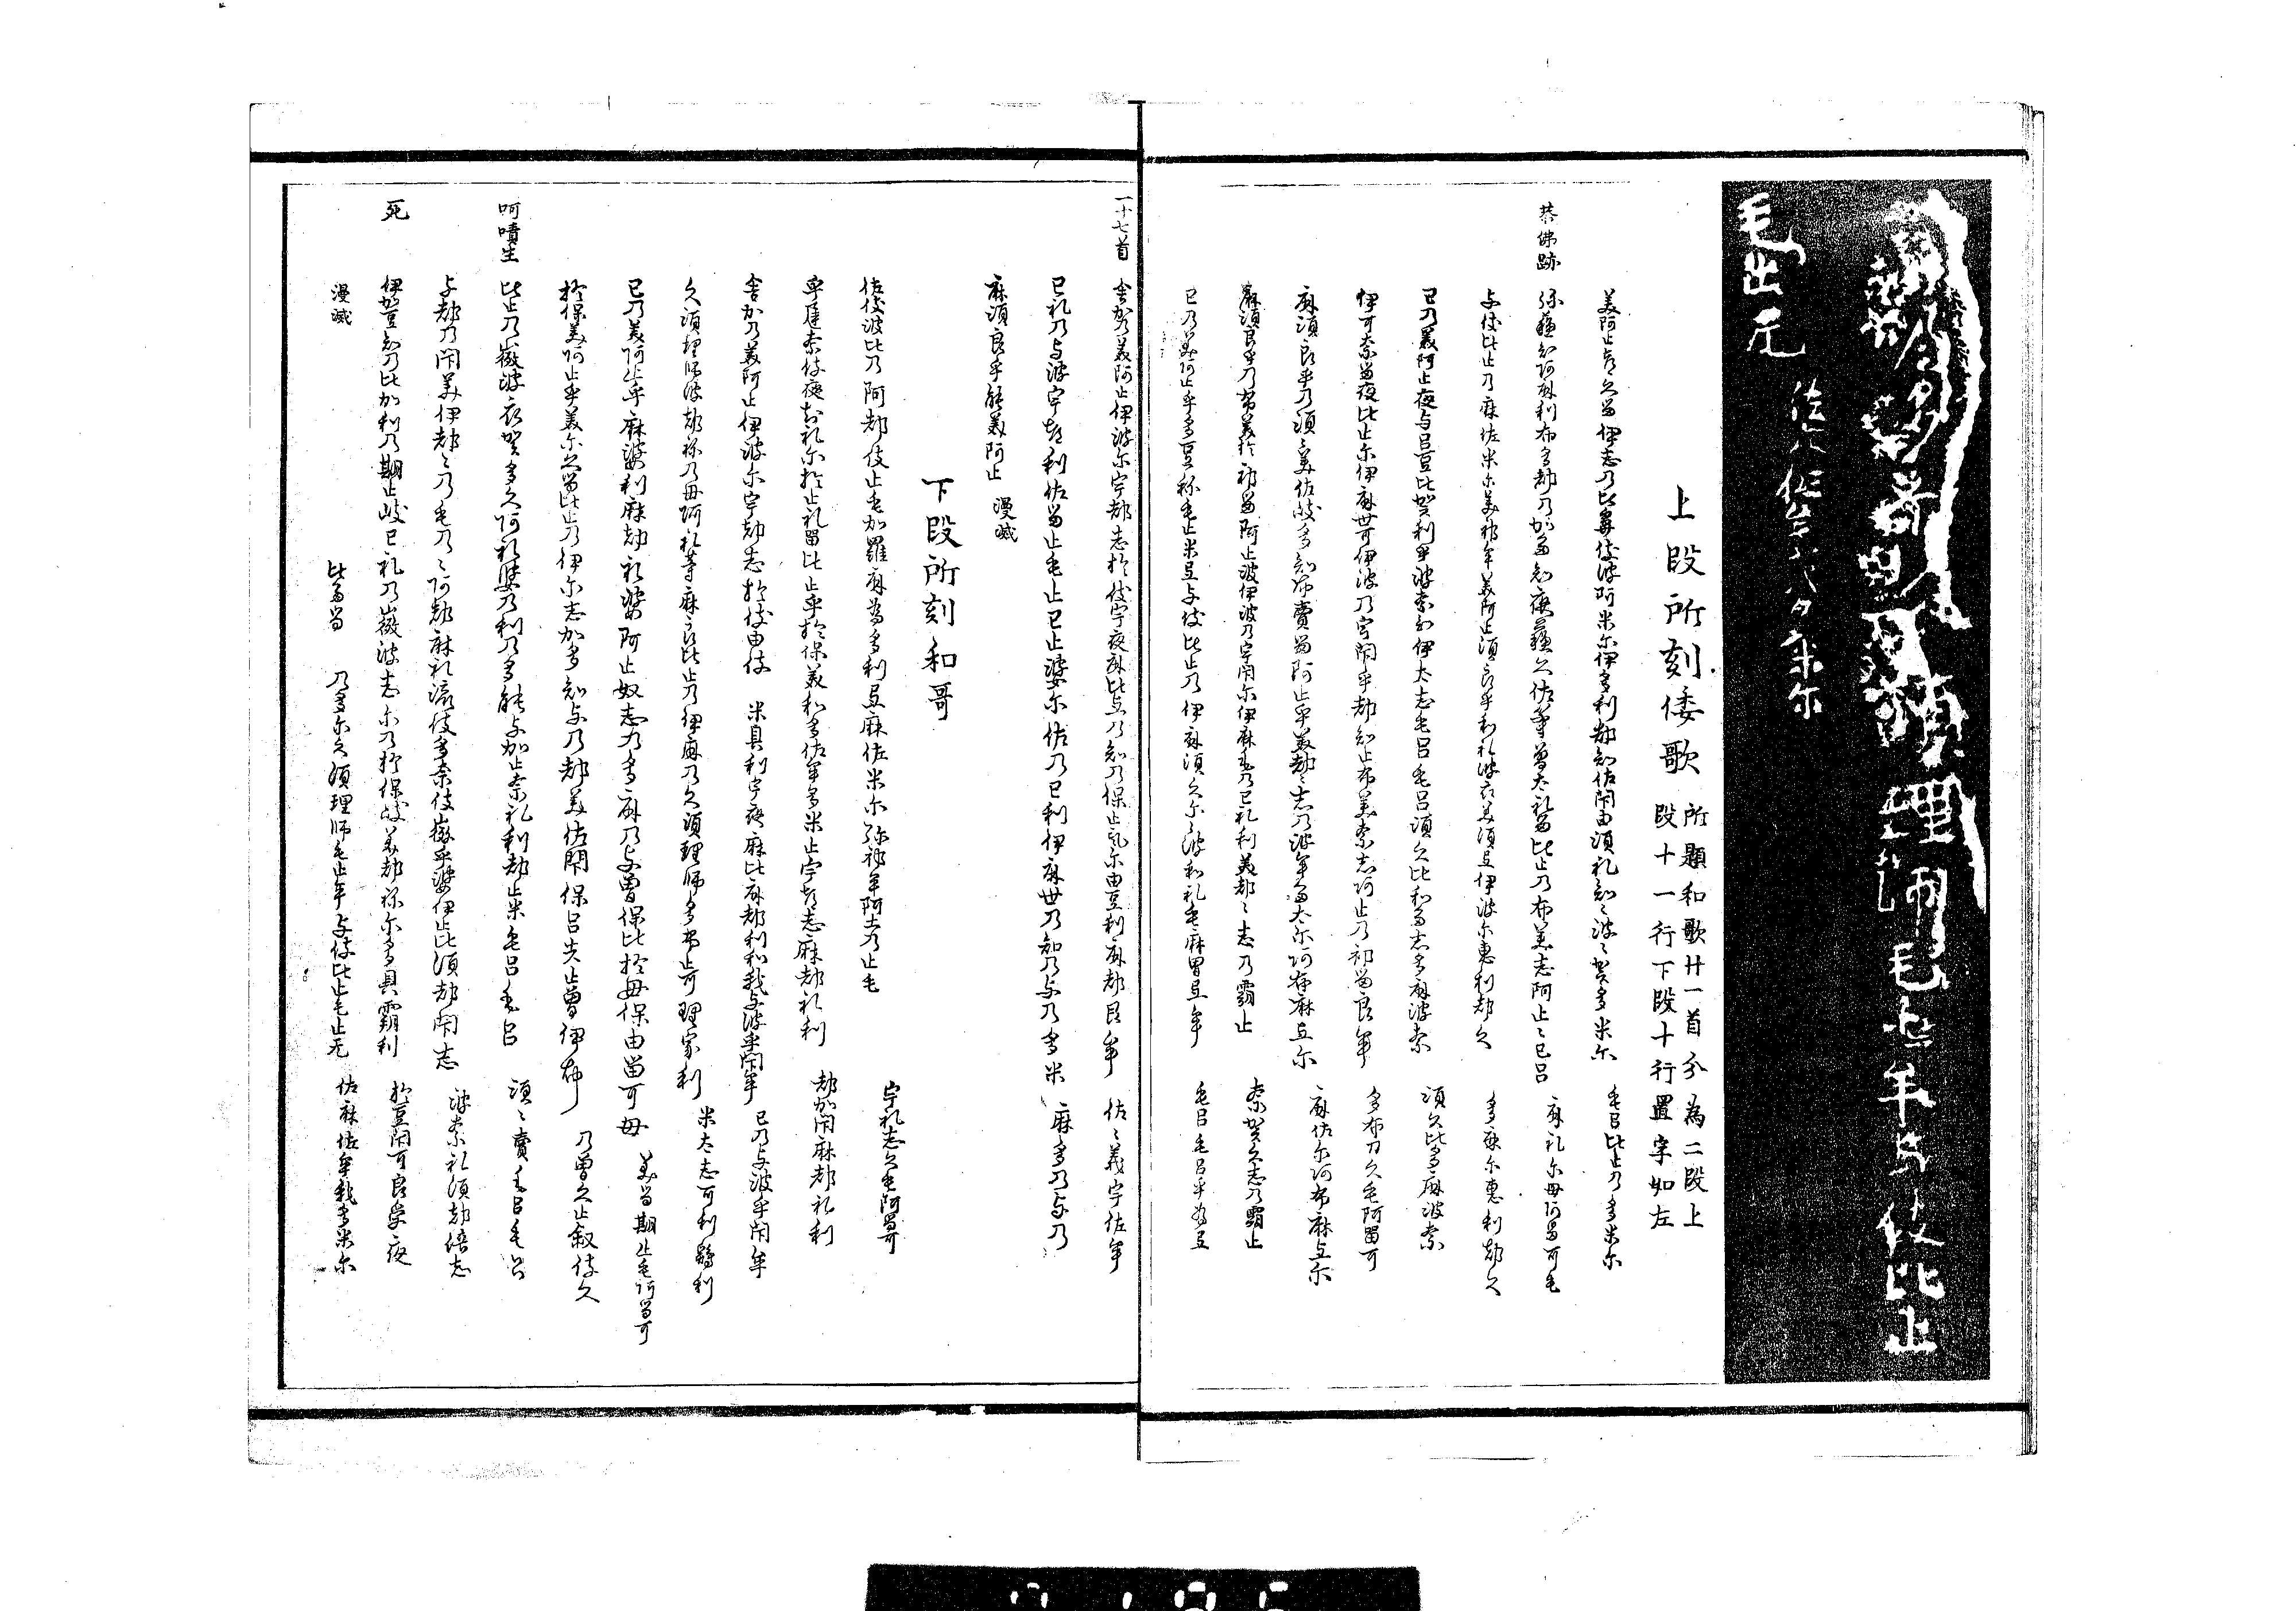 須理師毛止牟与伎比止
毛止无
上段所刻倭歌 所題和歌廿一首分為二段上
段十一行下段十行置字如左
美阿止都久留伊志乃比鼻伎波阿米尔伊多利都知佐閇由須礼知〻波〻賀多米尔 毛呂比止乃多米尔
恭佛跡 弥蘇知阿麻利布多都乃加多知夜蘇久佐等曽太礼留比止乃布美志阿止〻己呂 麻礼尔母阿留可毛
与伎比止乃麻佐米尔美祁牟美阿止須良乎和礼波衣美須弖伊波尔惠利都久 多麻尔惠利都久
己乃美阿止夜与呂豆比賀利乎波奈知伊太志毛呂毛呂須久比和多志多麻波奈 須久比多麻波奈
伊可奈留夜比止尔伊麻世可伊波乃宇閇乎都知止布美奈志阿止乃祁留良牟 多布刀久毛阿留可
麻須良乎乃須〻美佐岐多知布賣留阿止乎美都〻志乃波牟多太尔阿布麻弖尔 麻佐尔阿布麻弖尔
麻須良乎乃布美於祁留阿止波伊波乃宇閇尔伊麻毛乃己礼利美都〻志乃覇止 奈賀久志乃覇止
己乃美阿止乎多豆祢毛止米弖与伎比止乃伊麻須久尔〻波和礼毛麻胃弖牟 毛呂毛呂乎為弖
一十七首 舍加乃美阿止伊波尔宇都志於伎宇夜麻比弖乃知乃保止氣尔由豆利麻都良牟 佐〻義宇佐牟
己礼乃与波宇都利佐留止毛止己止婆尔佐乃己利伊麻世乃知乃与乃多米 麻多乃与乃
麻須良乎能美阿止 漫滅
下段所刻和哥
佐伎波比乃阿都伎止毛加羅麻為多利弖麻佐米尔弥祁牟阿止乃止毛 宇礼志久毛阿留可
乎遅奈伎夜和礼尔於止礼留比止乎於保美和多佐牟多米止宇都志麻都礼利 都加閇麻都礼利
舍加乃美阿止伊波尔宇都志於伎由伎 米具利宇夜麻比麻都利和我与波乎閇牟 己乃与波乎閇牟
久須理師波都祢乃母阿礼等麻良比止乃伊麻乃久須理師多布止可理家利 米太志可利鷄利
己乃美阿止乎麻婆利麻都礼婆阿止奴志乃多麻乃与曽保比於母保由留可母 美留期止毛阿留可
於保美阿止乎美尔久留比止乃伊尔志加多知与乃都美佐閇保呂夫止曽伊布 乃曽久止叙伎久
呵嘖生 比止乃微波衣賀多久阿礼婆乃利乃多能与加止奈礼利都止米毛呂毛呂 須〻賣毛呂毛呂
与都乃閇美伊都〻乃毛乃〻阿都麻礼流伎多奈伎微乎婆伊止比須都閇志 波奈礼須都倍志
死 伊加豆知乃比加利乃期止岐己礼乃微波志尔乃於保岐美都祢尔多具覇利 於豆閇可良受夜
漫滅 比多留 乃多尔久須理師毛止牟与伎比止毛止无 佐麻佐牟我多米尔